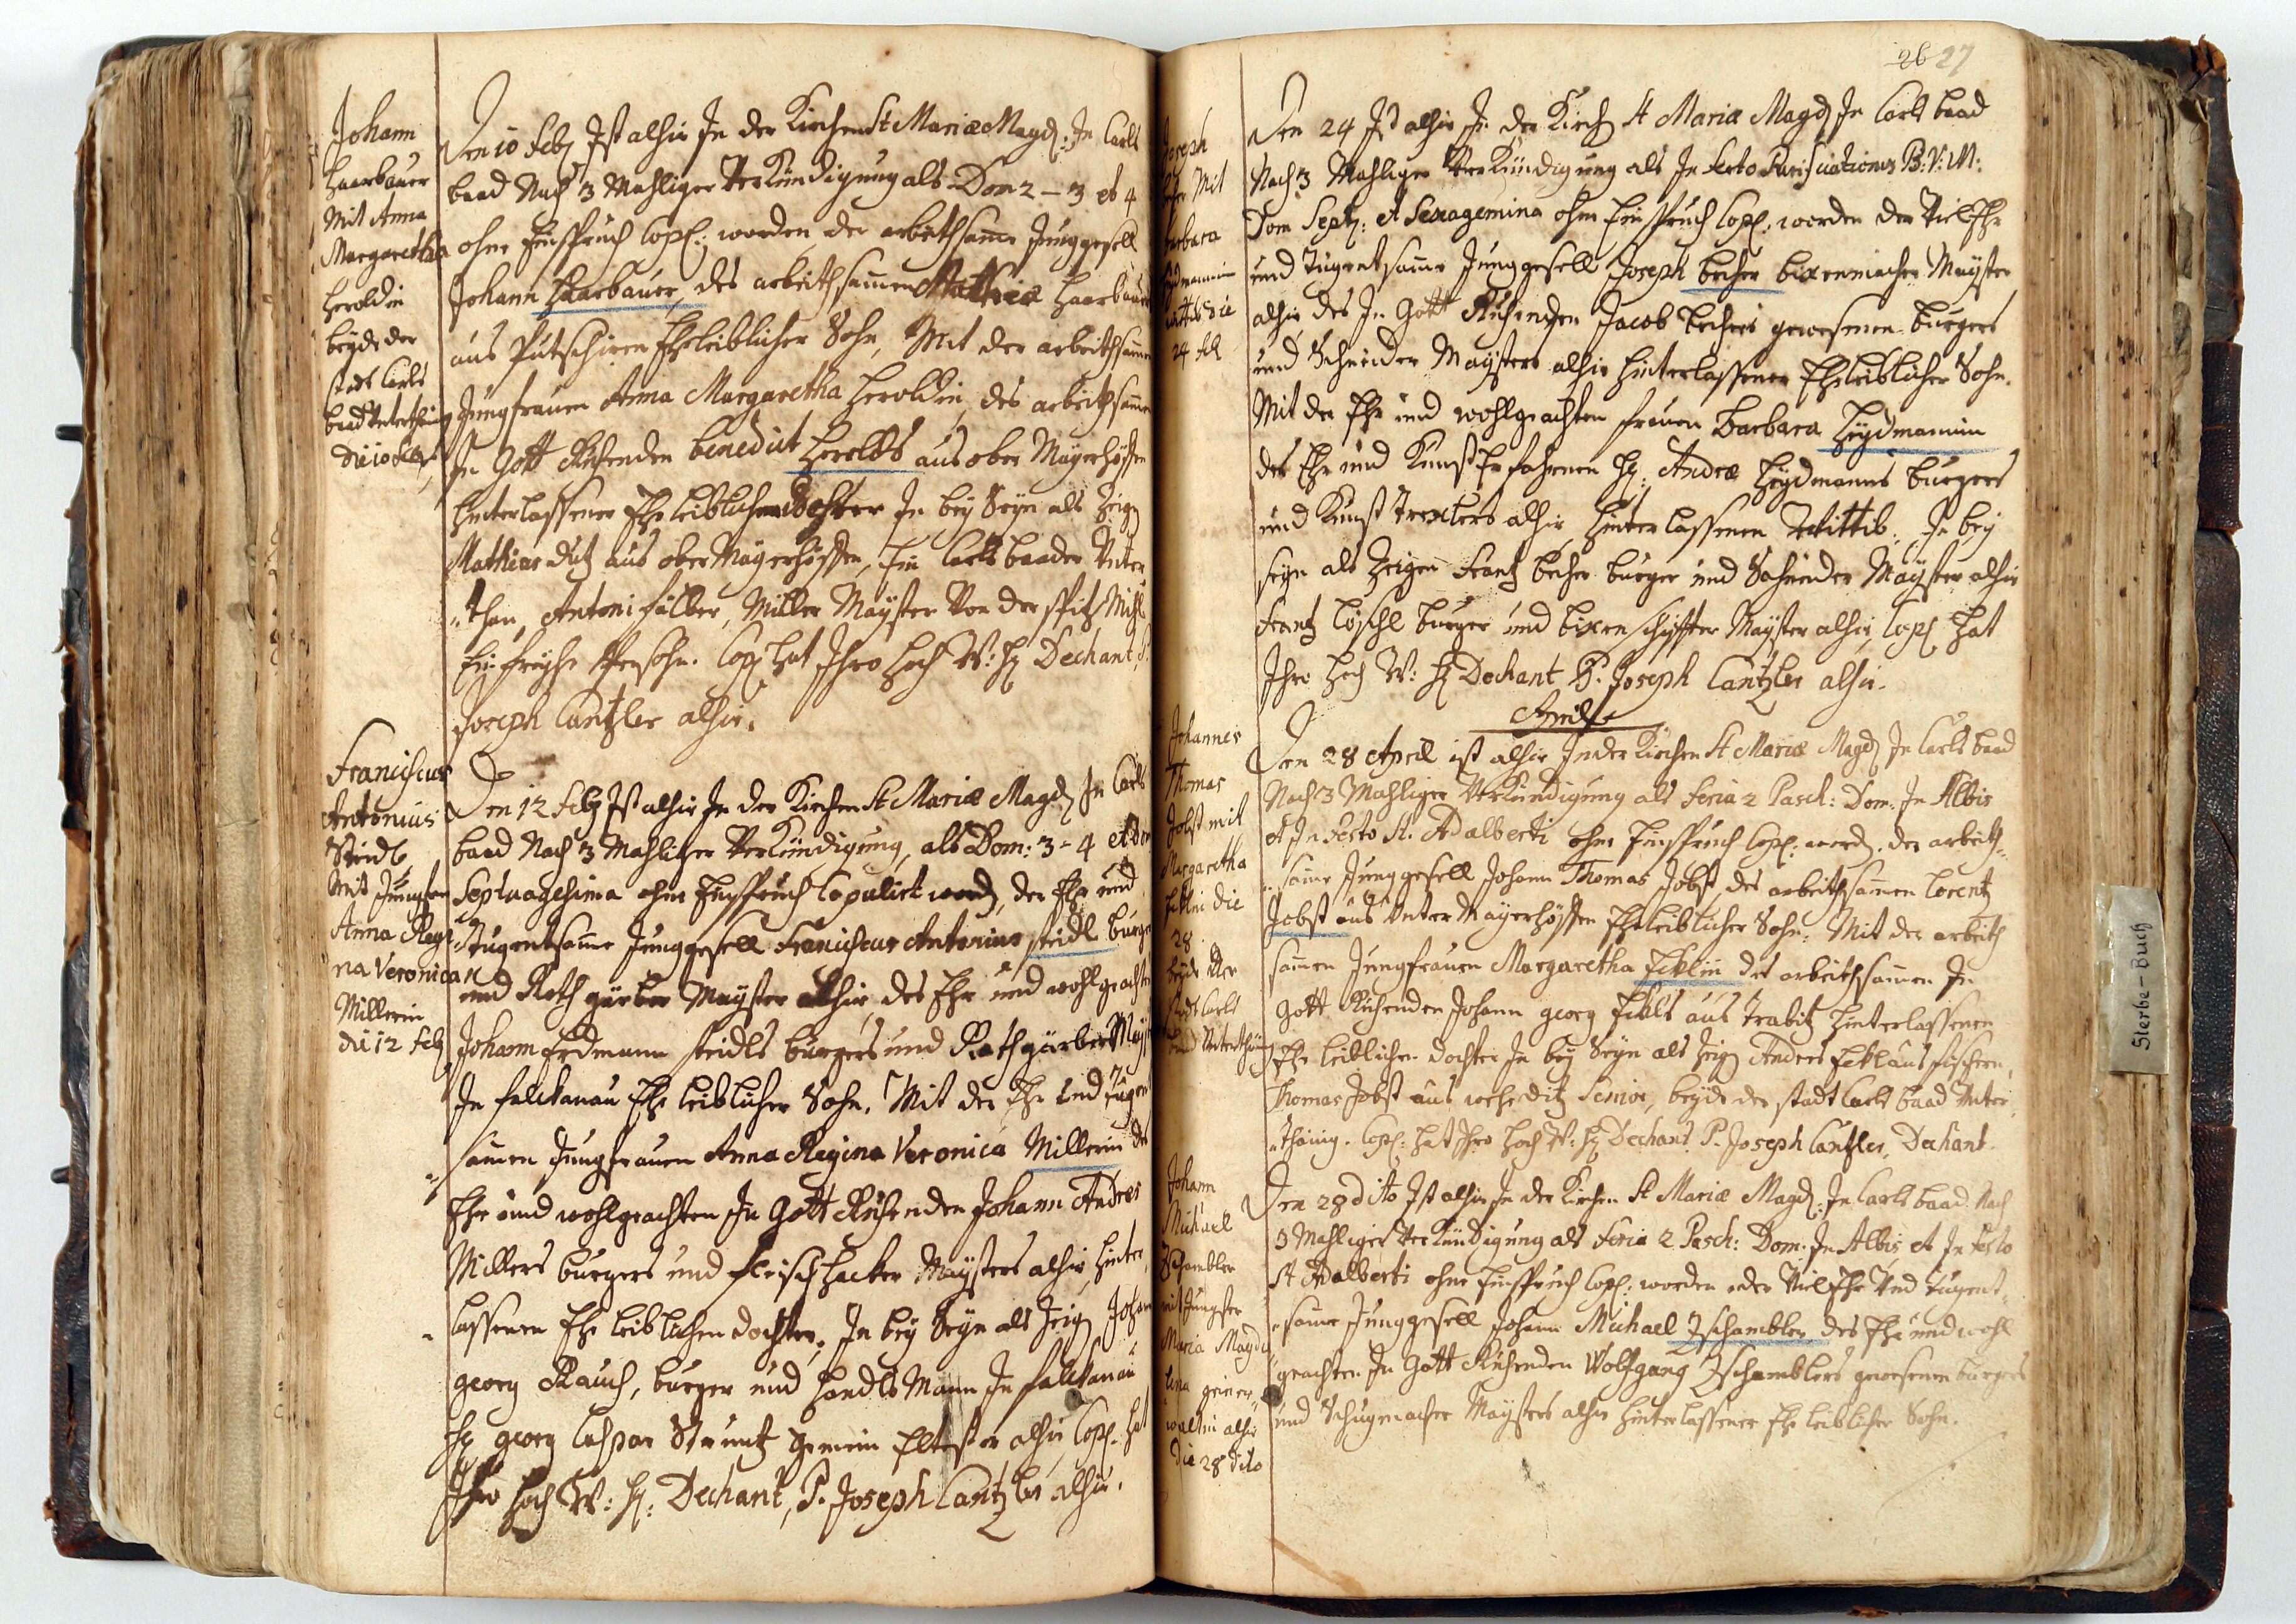 Johann
Haarbauer
Mit Anna
Margaretha
Heroldin
beyde der
stadt Carls
baad Unterthänig
die 10 Feb:
Den 10 Feb: Ist alhir In der Kirchen St Mariæ Magd: In Carls
baad Nach 3 Mahliger Verkündigung als Dom 2 – 3 et 4
ohne Einspruch Cop: worden, der arbeithsame Junggesell
Johann Haarbauer, des arbeithsamen Mathiæ Haarbauer
aus Putschiren Eheleiblicher Sohn, Mit der arbeithsamen
Jungfrauen Anna Margaretha Heroldin, des arbeithsamen
In Gott Ruhenden benedict Herolds aus ober Mayerhöffen
hinterlassener Eheleiblichen Dochter In bey Seyn als Zeig:
Mathias aus ober Mayerhöffen, Ein Carls baader Unter
than, Antoni Fälber, Miller Mayster Von der spitz Mihl
Ein freyhe Persohn. Cop: hat Ihro Hoch W: H: Dechant P.
Joseph Cantzler alhir.
Franciscus
Antonius
Steidl
Mit Jungfer
Anna Regi
na Veronica
Millerin
die 12 Feb
Den 12 Feb Ist alhir In der Kirchen St Mariæ Magd: In Carls
baad Nach 3 Mahliger Verkündigung, als Dom: 3 - 4 et Dom
Septuagesima ohne Einspruch Copulirt word: der Ehr und
Tugentsame Junggesell Franciscus Antonius steidl burger
und Roth gärber Mayster alhir, des Ehr und wohlgeachten
Johann Erdmann steidls burgers und Rothgärber Mayst
In Falckanau Ehe leiblicher Sohn. Mit der Ehr und Tugent
samen Jungfrauen Anna Regina Veronica Millerin des
Ehr und wohlgeachten In Gott Ruhenden Johann Andres
Millers burgers und fleischhacker Maysters alhir hinter
lassenen Ehe leiblichen dochter. In bey Seyn als Zeig: Johan
georg Rauch, burger und handls Mann In Falckanau
H: georg Caspar Stuntz gemein Eltester alhir, Cop: hat
Ihro Hoch W: H: Dechant, P. Joseph Cantzler alhir.
26 27
Joseph
Mit
barbara
Heydmannin
Wittib die
24 feb
Den 24 Ist alhir In der Kirch St Mariæ Magd: In Carls baad
Nach 3 Mahliger Verkündigung als In Festo Purificationis B: V: M:
Dom Sept: et Sexagesima ohne Einspruch Cop: worden der Viel Ehr
und Tugentsame Junggesell Joseph becher bixenmacher Mayster
alhir des In Gott Ruhenden Jacob bechers gewesenen burgers
und Schneider Maysters alhir hinterlassener Eheleiblicher Sohn.
Mit der Ehr und wohlgeachten frauen Barbara Heydmannin
des Ehr und Kunst Erfahrenen H: Andræ Heydmanns burgers
und Kunst trexlers alhir, hinterlassenen Wittib. In bey
seyn als Zeigen Frantz becher burger und Schneider Mayster alhir
Frantz löschl burger und bixenschiffter Mayster alhir, Cop: hat
Ihro Hoch W: H: Dechant P. Joseph Cantzler alhir.
April
Johannes
Thomas
Jobst mit
Margaretha
Feklin die
28
beyde der
stadt Carls
baad Unterthänig
Den 28 April ist alhir In der Kirchen St Mariæ Magd: In Carls baad
Nach 3 Mahliger Verkündigung als Feria 2 Pasch: Dom: In Albis
et In Festo St. Adalberti ohne Einspruch Cop: word: der arbeith=
same Junggesell Johann Thomas Jobst, des arbeithsamen lorentz
Jobst aus Unter Mayerhöffen Eheleiblicher Sohn. Mit der arbeith
samen Jungfrauen Margaretha Feklin des arbeithsamen In
Gott Ruhenden Johann georg Fekls aus trabitz hinterlassenen
Ehe leiblichen dochter In bey Seyn als Zeig: Andres Fekl aus fischern,
Thomas Jobst aus weheditz Senior, beyde der stadt Carls baad Unter
thänig. Cop: hat Ihro Hoch W: H: Dechant P. Joseph Cantzler, Dechant.
Johann
Michael
Zschambler
mit Jungfer
Maria Magda
lena
alhir
die 28 dito
Den 28 dito Ist alhir In der Kirchen St Mariæ Magd: In Carls baad Nach
3 Mahliger Verkündigung als Feria 2 Pasch: Dom: In Albis et In Festo
St Adalberti ohne Einspruch Cop: worden der Viel Ehr Und Tugent=
same Junggesell Johann Michael Zschambler, des Ehr und wohl
geachten In Gott Ruhenden Wolfgang Zschamblers gewesenen burgers
und Schugmacher Maysters alhir hinterlassener Ehe leiblicher Sohn.
Sterbe-Buch